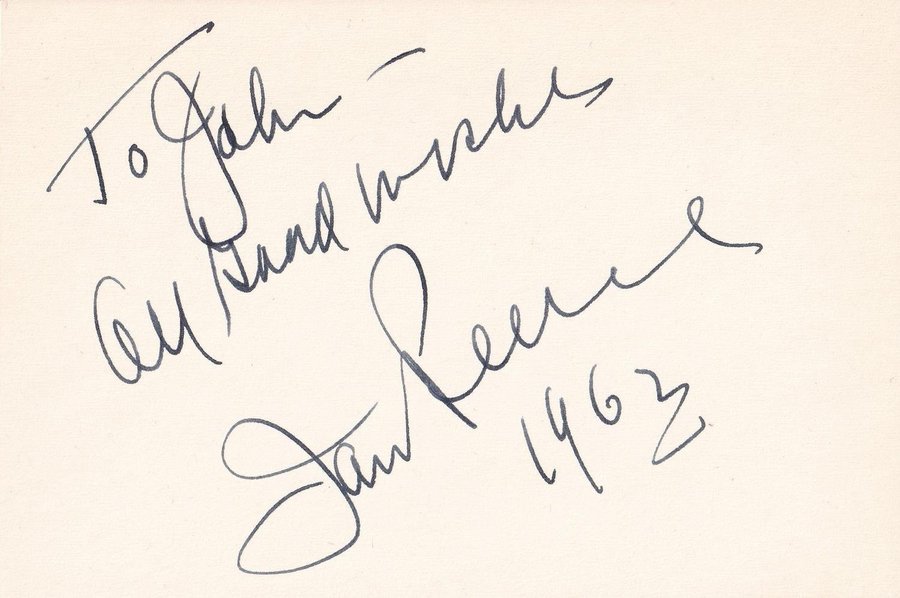 To John –
All Good wishes
Jan Peerce
1963